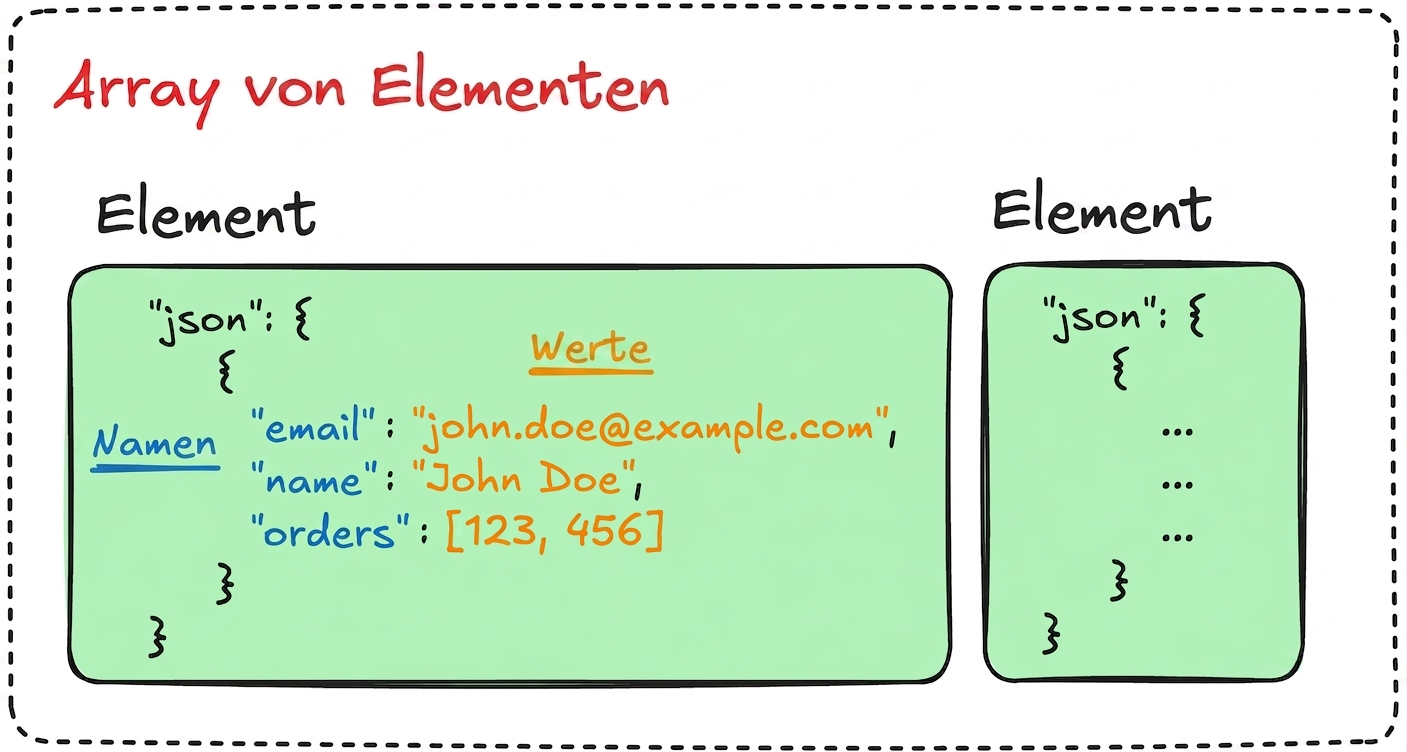 Array von Elementen
Element
"json": {
{
Werte
Namen
"email": "john.doe@example.com",
"name": "John Doe",
"orders": [123, 456]
}
}
Element
"json": {
{
...
...
...
}
}